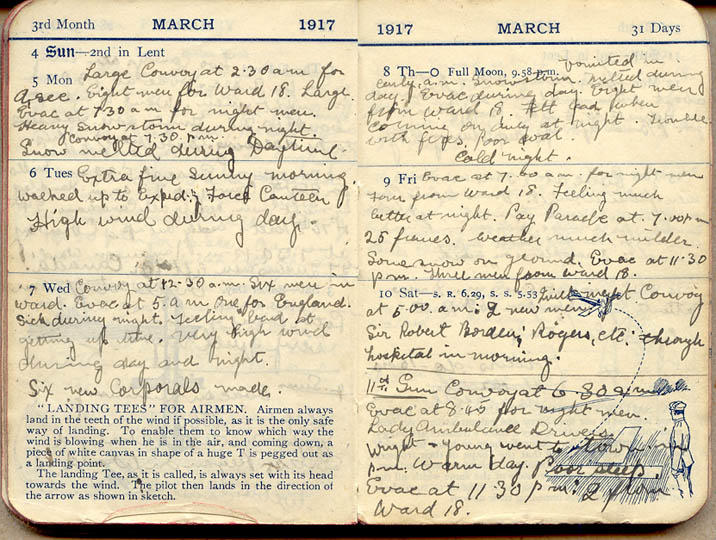 3rd Month MARCH 1917
4 Sun—2nd in Lent
5 Mon Large Convoy at 2.30 a m for
Eight men for Ward 18. Large
Evac at 7 30 a m for night men.
Heavy snow storm during night.
Convoy at 7.30. p.m.
Snow melted during Daytime.
6 Tues Extra fine Sunny morning
walked up to Exped. Force Canteen
High wind during day.
7 Wed Convoy at 12.30 a.m. Six men in
ward. Evac at 5. a m One for England.
Sick during night. Feeling bad at
getting up time. Very high wind
during day and night.
Six new Corporals made.
"LANDING TEES" FOR AIRMEN. Airmen always
land in the teeth of the wind if possible, as it is the only safe
way of landing. To enable them to know which way the
wind is blowing when he is in the air, and coming down, a
piece of white canvas in shape of a huge T is pegged out as
a landing point.
The landing Tee, as it is called, is always set with its head
towards the wind. The pilot then lands in the direction of
the arrow as shown in sketch.
1917 MARCH 31 Days
vomited in
8 Th—O Full Moon, 9.58 p.m.
early a.m. Snow melted during
day. Evac during day. Eight men
from Ward 18. Felt bad when
coming on duty at night. Trouble
with fires, poor coal.
Cold night.
9 Fri Evac at 7. a.m. for night men
four from Ward 18. Feeling much
better at night. Pay Parade at 7. p m
25 francs. Weather much milder.
Some snow on ground. Evac at 11.30
p.m. Three men from Ward 18.
10 Sat—S. R. 6.29, S. S. 5.53 Quiet night Convoy
at 5.00 a.m. 2 new men
Sir Robert Borden, Rogers, etc. through
hospital in morning.
11th Sun Convoy at 6 30 a m
Evac at 8.45 for night men.
Lady Ambulance Drivers
Wright & Young went to town in
p m. Warm day. Poor sleep.
Evac at 11 30 p m. 2 from
Ward 18.